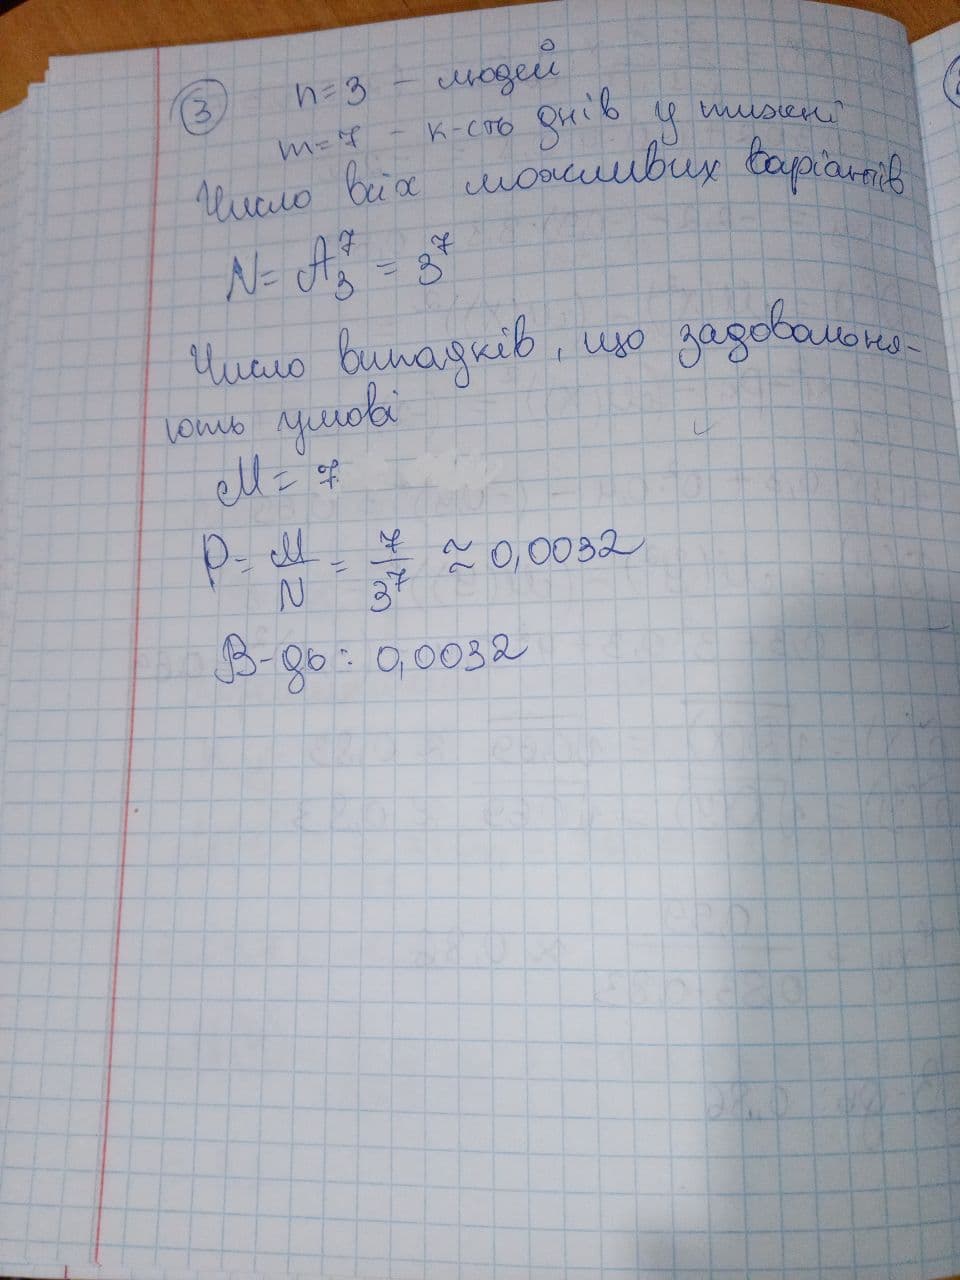 3 n=3 - людей
m=7 - к-сть днів у тижні
Число всіх можливих варіантів
N= A₃⁷ = 3⁷
Число випадків, що задовольня-
ють умові
M= 7
P= M/N = 7/3⁷ ≈ 0,0032
В-дь: 0,0032